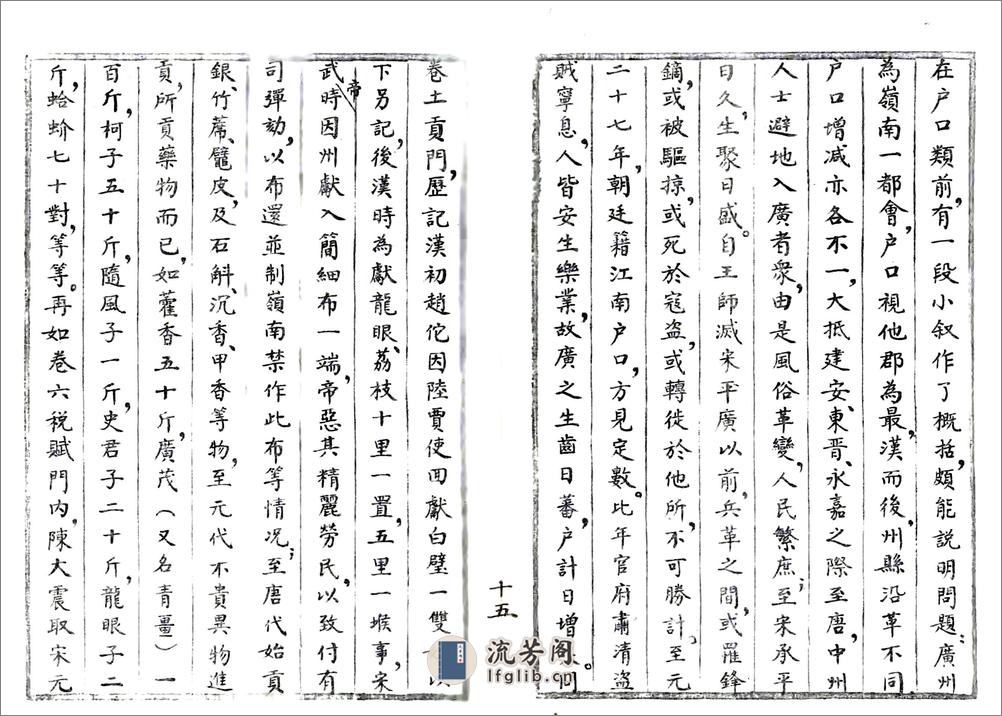 在户口類前，有一段小叙作了概括，頗能説明問題：廣州
為嶺南一都會，户口視他郡為最，漢而後，州縣沿革不同
户口增减亦各不一，大抵建安、東晋、永嘉之際至唐，中州
人士避地入廣者衆，由是風俗革變，人民繁庶；至宋承平
日久，生聚日盛。自王師滅宋平廣以前，兵革之間，或罹鋒
鏑，或被驅掠，或死於寇盗，或轉徙於他所，不可勝計。至元
二十七年，朝廷籍江南户口，方見定數。比年官府肅清盗
賊寧息，人皆安生樂業，故廣之生齒日蕃，户計日增
十五
卷土貢門，歷記漢初趙佗因陸賈使回獻白璧一雙
下另記，後漢時為獻龍眼、荔枝十里一置，五里一堠事，宋
武帝時因州獻入簡細布一端，帝惡其精麗勞民，以致付有
司彈劾，以布還並制嶺南禁作此布等情况；至唐代始貢
銀、竹蓆、鼊皮，及石斛、沉香、甲香等物，至元代不貴異物進
貢，所貢藥物而已，如藿香五十斤，廣茂（又名青畺）一
百斤，柯子五十斤，隨風子一斤，史君子二十斤，龍眼子二
斤，蛤蚧七十對，等等。再如卷六税賦門内，陳大震取宋元
流芳阁
lfglib.cn